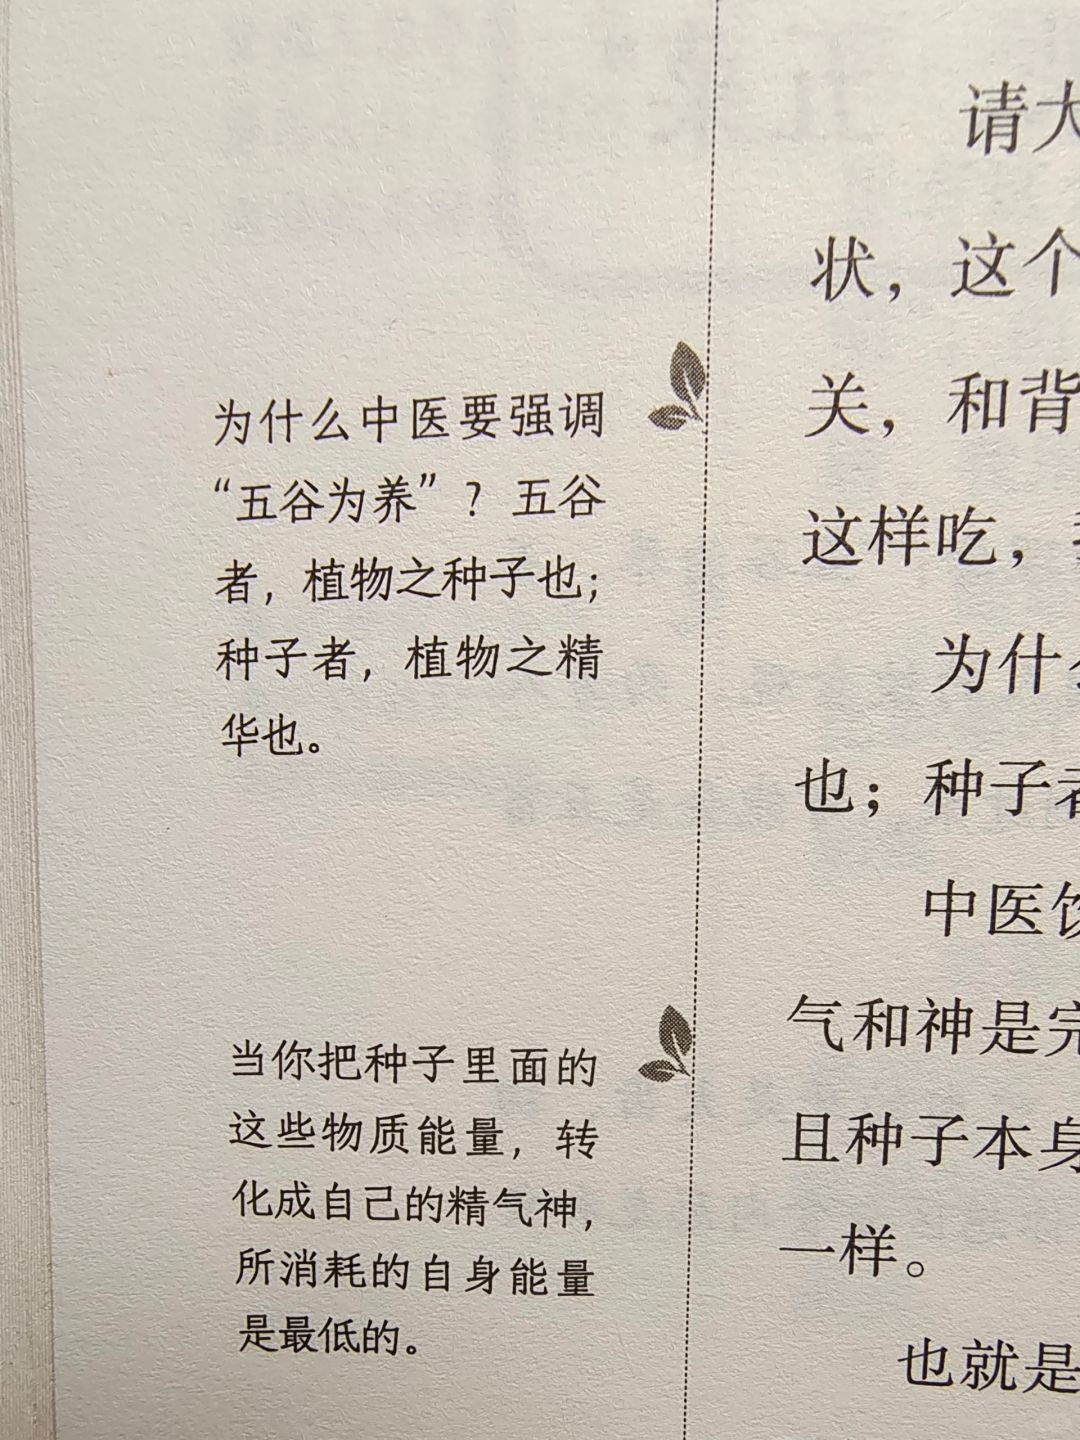 为什么中医要强调
“五谷为养”？五谷
者，植物之种子也；
种子者，植物之精
华也。
当你把种子里面的
这些物质能量，转
化成自己的精气神，
所消耗的自身能量
是最低的。
请大
状，这个
关，和背
这样吃，
为什么
也；种子者
中医饮
气和神是完
且种子本身
一样。
也就是